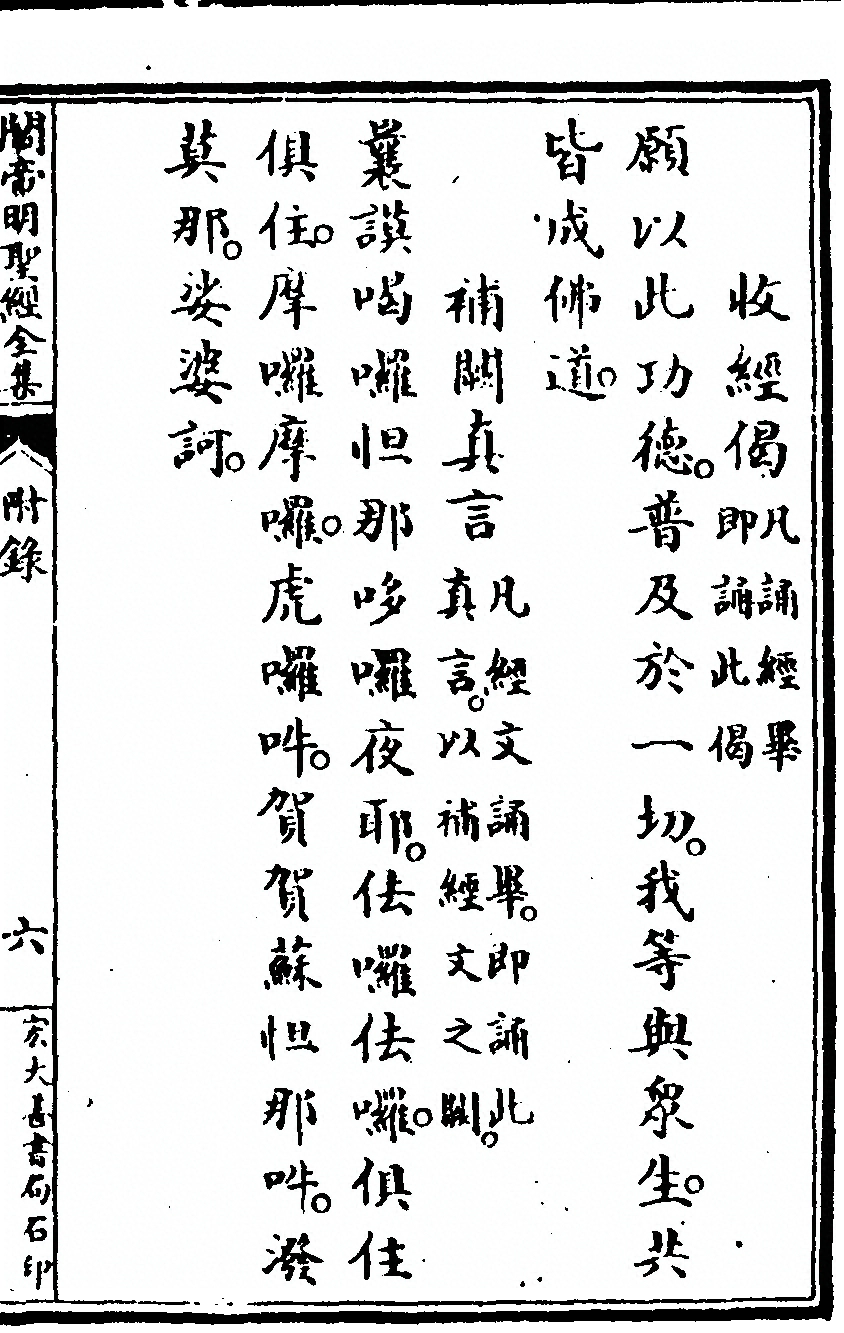 收經偈 凡誦經畢即誦此偈
願以此功德。普及於一切。我等與眾生。共
皆成佛道。
補闕真言 凡經文誦畢。即誦此真言。以補經文之闕。
曩謨喝囉怛那哆囉夜耶。佉囉佉囉。俱住
俱住。摩囉摩囉。虎囉吽。賀賀蘇怛那吽。潑
莫那。娑婆訶。
關帝明聖經全集
附錄
六
宏大善書局石印